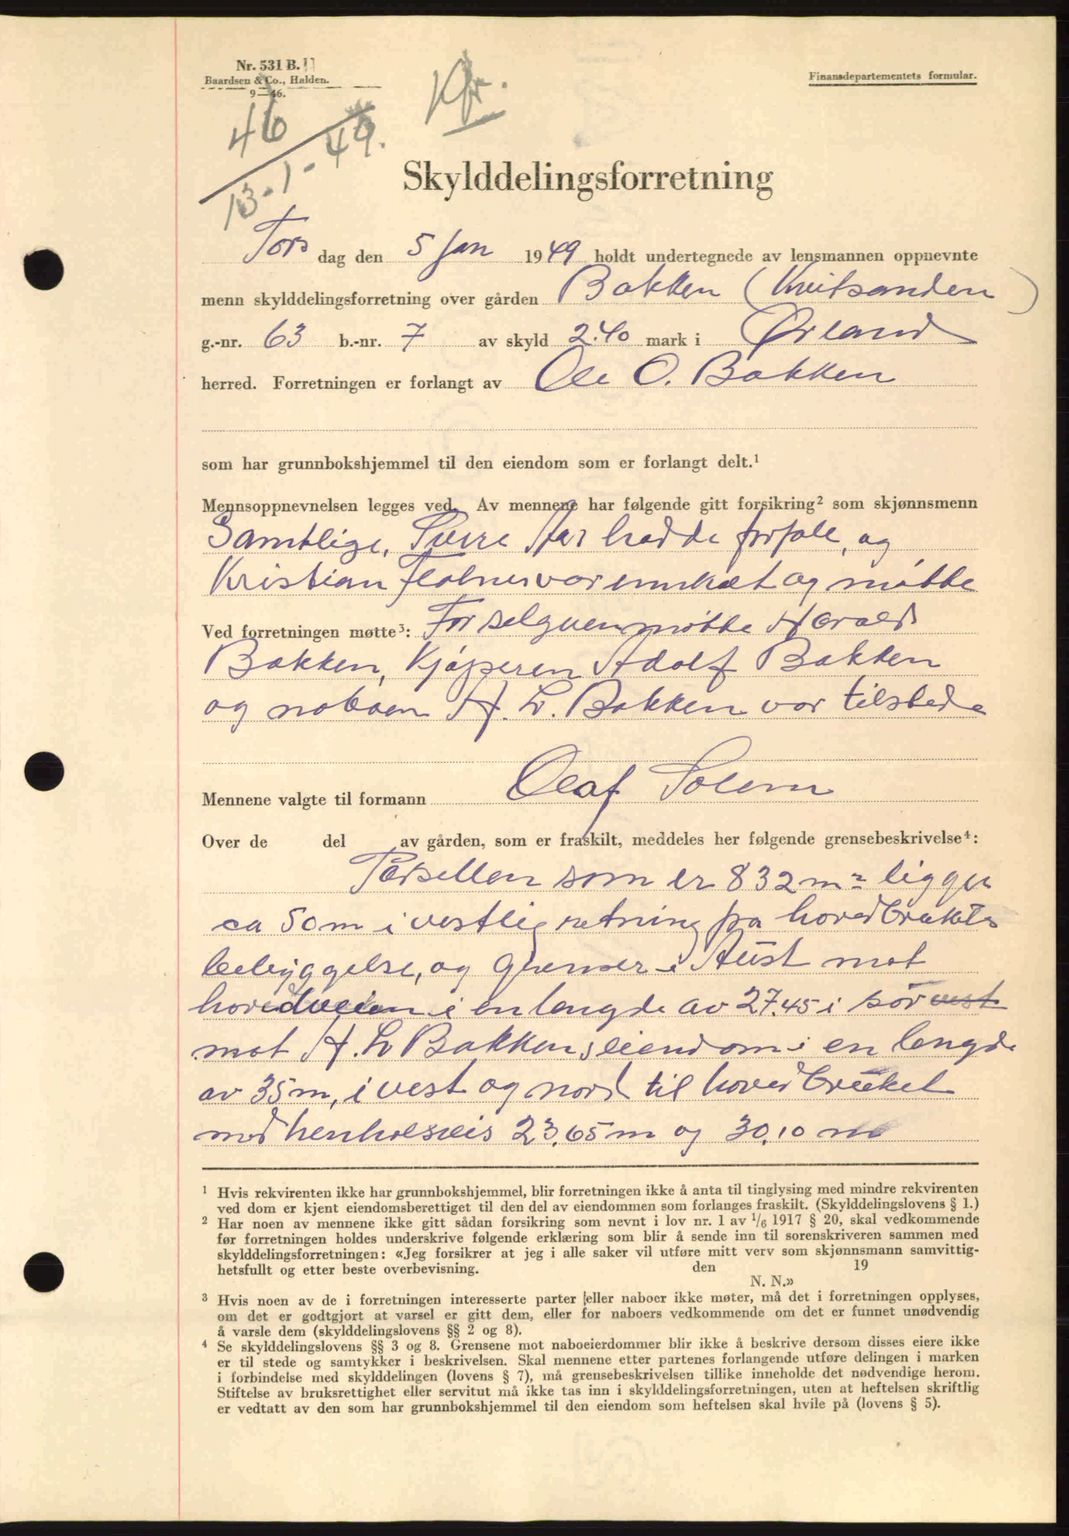 Nr. 531 B.
Baardsen & Co., Halden.
9—46.
Kfr.
Finansdepartementets formular.
46
13-1-49.
Skylddelingsforretning
Tors dag den 5 Jan 1949 holdt undertegnede av lensmannen oppnevnte
menn skylddelingsforretning over gården Bakken (Kvitsanden)
g.-nr. 63 b.-nr. 7 av skyld 2.40 mark i Ørland
herred. Forretningen er forlangt av Ole O. Bakken
som har grunnbokshjemmel til den eiendom som er forlangt delt.¹
Mennsoppnevnelsen legges ved. Av mennene har følgende gitt forsikring² som skjønnsmenn
Samtlige, Sverre hadde forfall, og
Kristian var innkalt og møtte
Ved forretningen møtte³: For selgeren møtte Harald
Bakken, Kjøperen Adolf Bakken
og naboen H. L. Bakken var tilstede
Mennene valgte til formann Olaf Solem
Over de del av gården, som er fraskilt, meddeles her følgende grensebeskrivelse⁴:
Parsellen som er 832 m² ligger
ca 50 m i vestlig retning fra hovedbrukets
bebyggelse, og grenser i Aust mot
hovedveien i en lengde av 27.45 i sør vest
mot H. L Bakkens eiendom i en lengde
av 35 m, i vest og nord til hovedbruket
med henholsvis 23,65 m og 30,10 m
¹ Hvis rekvirenten ikke har grunnbokshjemmel, blir forretningen ikke å anta til tinglysing med mindre rekvirenten
ved dom er kjent eiendomsberettiget til den del av eiendommen som forlanges fraskilt. (Skylddelingslovens § 1.)
² Har noen av mennene ikke gitt sådan forsikring som nevnt i lov nr. 1 av 1/6 1917 § 20, skal vedkommende
før forretningen holdes underskrive følgende erklæring som blir å sende inn til sorenskriveren sammen med
skylddelingsforretningen: «Jeg forsikrer at jeg i alle saker vil utføre mitt verv som skjønnsmann samvittig-
hetsfullt og etter beste overbevisning. den 19
N. N.»
³ Hvis noen av de i forretningen interesserte parter eller naboer ikke møter, må det i forretningen opplyses,
om det er godtgjort at varsel er gitt dem, eller for naboers vedkommende om det er funnet unødvendig
å varsle dem (skylddelingslovens §§ 2 og 8).
⁴ Se skylddelingslovens §§ 3 og 8. Grensene mot naboeierdommer blir ikke å beskrive dersom disses eiere ikke
er til stede og samtykker i beskrivelsen. Skal mennene etter partenes forlangende utføre delingen i marken
i forbindelse med skylddelingen (lovens § 7), må grensebeskrivelsen tillike inneholde det nødvendige herom.
Stiftelse av bruksrettighet eller servitut må ikke tas inn i skylddelingsforretningen, uten at heftelsen skriftlig
er vedtatt av den som har grunnbokshjemmel til den eiendom som heftelsen skal hvile på (lovens § 5).